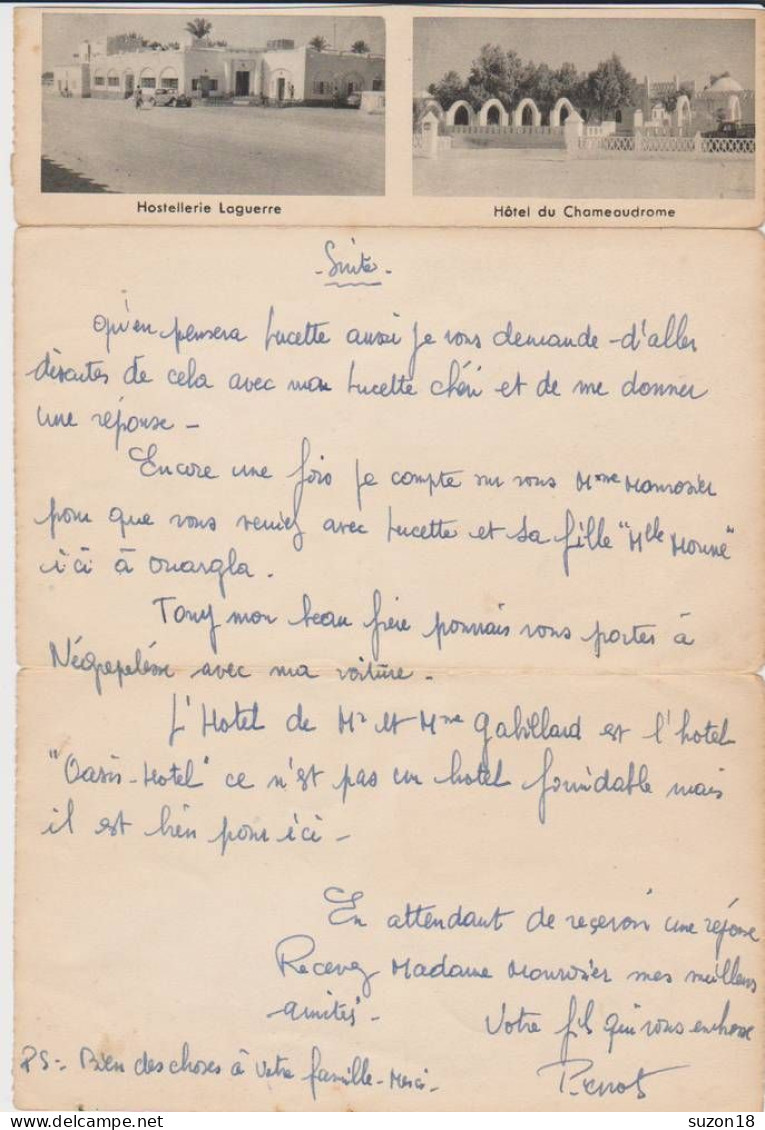 Hostellerie Laguerre
Hôtel du Chameaudrome
- Suite -
qu'en pensera Lucette aussi je vous demande d'aller
discuter de cela avec mon Lucette chéri et de me donner
une réponse -
Encore une fois je compte sur vous Mme
pour que vous veniez avec Lucette et sa fille "Mlle
ici à Ouargla.
Tony mon beau frère pourrais vous porter à
Négrepelisse avec ma voiture -
L'Hotel de Mr et Mme Gabillard est l'hotel
"Oasis-Hotel" ce n'est pas un hotel formidable mais
il est bien pour ici -
En attendant de reçevoir une réponse
Recevez Madame mes meilleurs
amitiés - Votre fils qui vous embrasse
PS - Bien des choses à votre famille - Merci -
suzon18